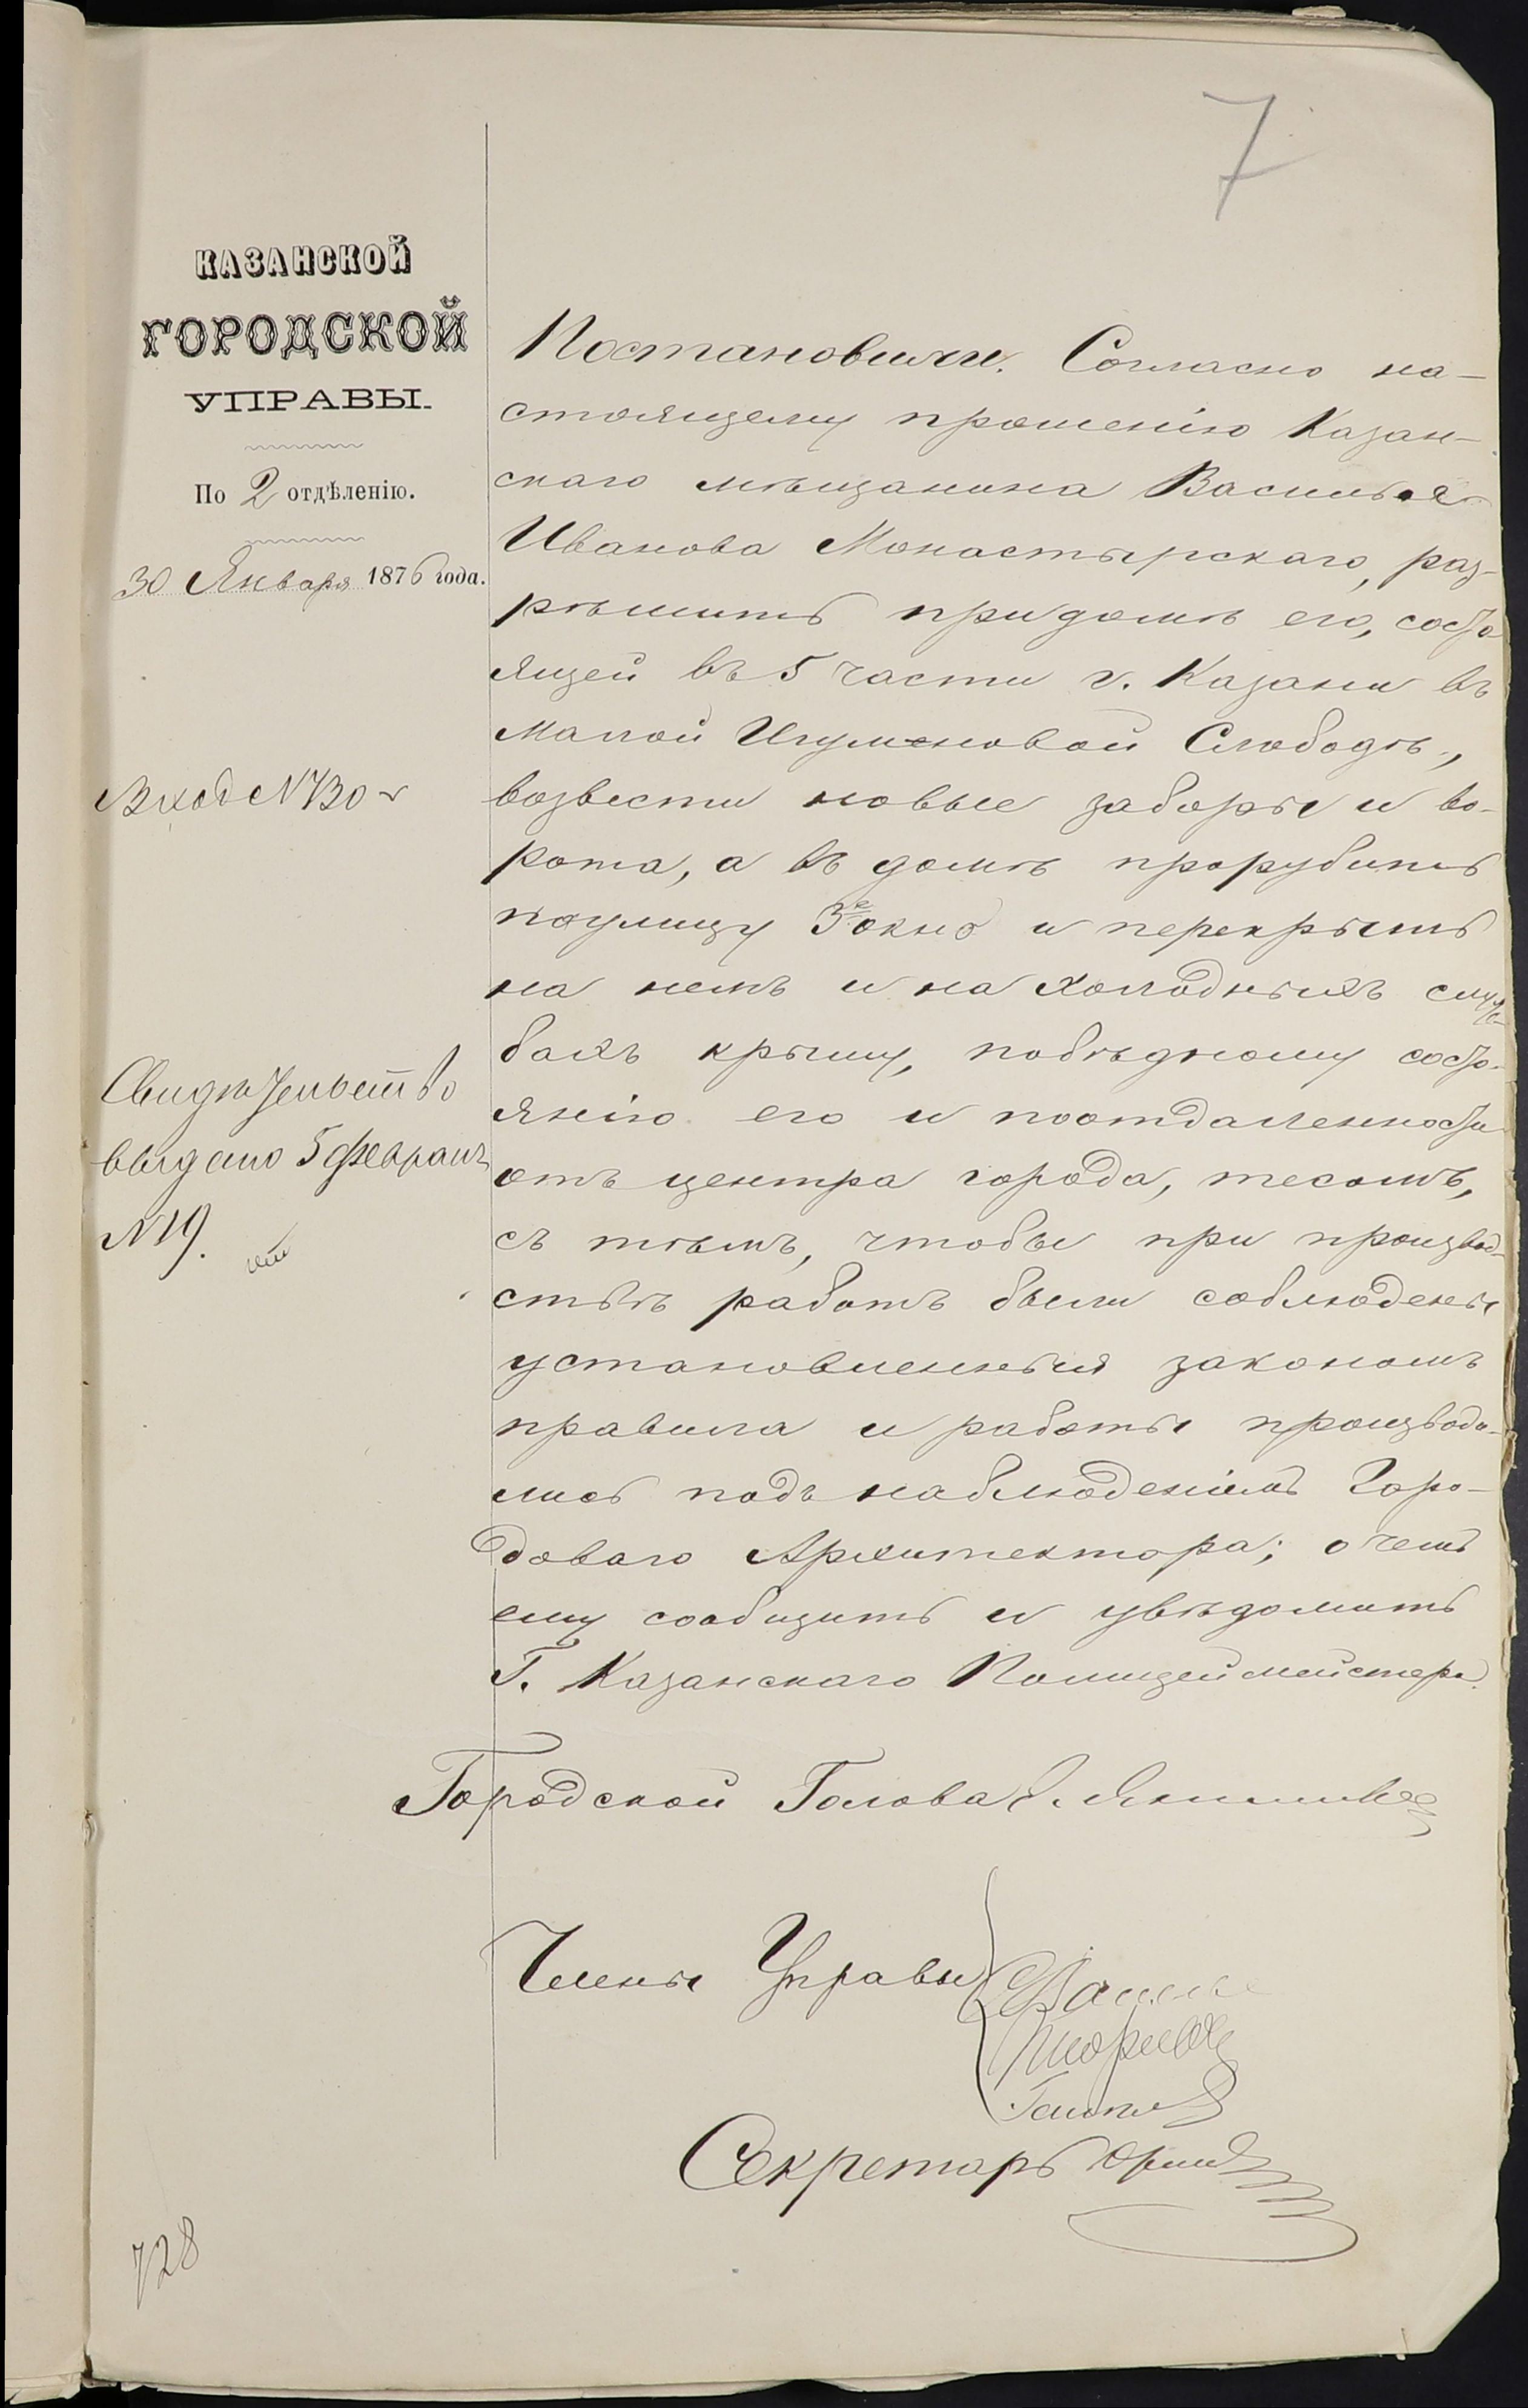 7
КАЗАНСКОЙ
ГОРОДСКОЙ
УПРАВЫ.
По 2 отдѣленію.
30 Января 1876 года.
Вход № 730
Свидѣтельство
выдано 5 февраля
№ 19.
Постановили. Согласно на-
стоящему прошенію Казан-
скаго мѣщанина Василья
Иванова Монастырскаго, раз-
рѣшить при домѣ его, состо
ящей въ 5 части г. Казани въ
Малой Игумновой Слободѣ,
возвести новые заборы и во-
рота, а въ домѣ прорубить
на улицу 3е окно и перекрыть
на немъ и на холодныхъ служ
бахъ крышу, по бѣдному состо-
янію его и по отдаленности
отъ центра города, тесомъ,
съ тѣмъ, чтобы при производ-
ствѣ работъ были соблюдены
установленныя закономъ
правила и работы производи-
лись подъ наблюденіемъ Горо-
доваго Архитектора; о чемъ
ему сообщить и увѣдомить
Г. Казанскаго Полицеймейстера.
Городской Голова Э. Янишевскій
Члены Управы
Секретарь
728